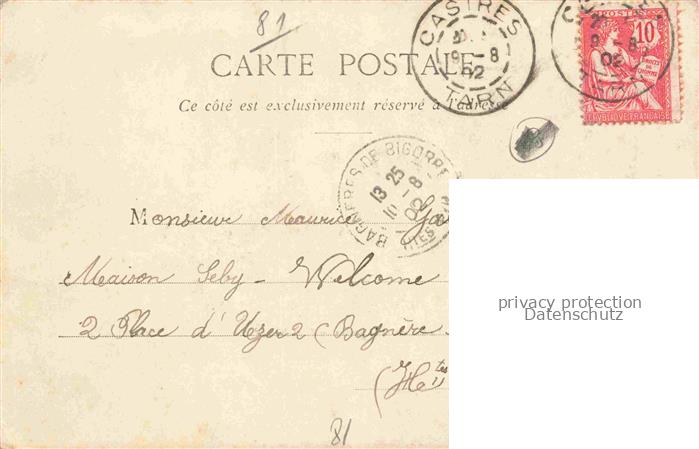 81
CARTE POSTALE
Ce côté est exclusivement réservé à l'adresse
CASTRES
9 - 8
02
TARN
POSTES
10
REPUBLIQUE FRANÇAISE
9 - 8
02
BAGNERES DE BIGORRE
13 25
10 - 8
02
Monsieur Maurice
Maison Seby - Welcome
2 Place d'Uzer 2 (Bagnère
(Htes
privacy protection
Datenschutz
81